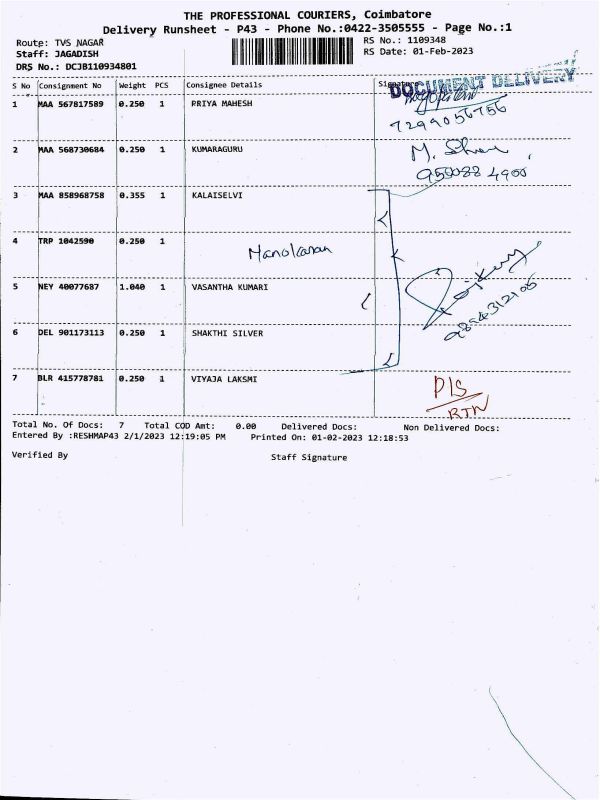 THE PROFESSIONAL COURIERS, Coimbatore
Delivery Runsheet - P43 - Phone No.:0422-3505555 - Page No.:1
Route: TVS NAGAR
RS No.: 1109348
Staff: JAGADISH
RS Date: 01-Feb-2023
DRS No.: DCJB110934801
S No Consignment No Weight PCS Consignee Details Signature
DOCUMENT DELIVERY
1 MAA 567817589 0.250 1 PRIYA MAHESH
7299056756
2 MAA 568730684 0.250 1 KUMARAGURU M.
3 MAA 858968758 0.355 1 KALAISELVI
4 TRP 1042590 0.250 1 Manokaran
5 NEY 40077687 1.040 1 VASANTHA KUMARI
6 DEL 901173113 0.250 1 SHAKTHI SILVER
7 BLR 415778781 0.250 1 VIYAJA LAKSMI
RTN
Total No. Of Docs: 7 Total COD Amt: 0.00 Delivered Docs: Non Delivered Docs:
Entered By :RESHMAP43 2/1/2023 12:19:05 PM Printed On: 01-02-2023 12:18:53
Verified By Staff Signature